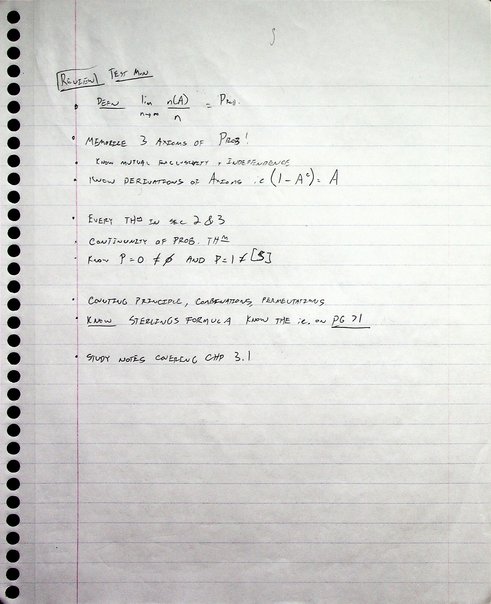 Review Test Mon.
Defn lim n→∞ n(A)/n = Prob.
Memorize 3 Axioms of Prob!
Know mutual exclusivity + independence
Know derivations of Axioms i.e (1 - Aᶜ) = A
Every Thᵐ in sec 2 & 3
Continuity of Prob. Thᵐ
Know P=0 ≠ ∅ and P=1 ≠ [S]
Counting principle, combinations, permutations
Know Sterlings formula know the i.e. on pg 71
Study notes covering chp 3.1